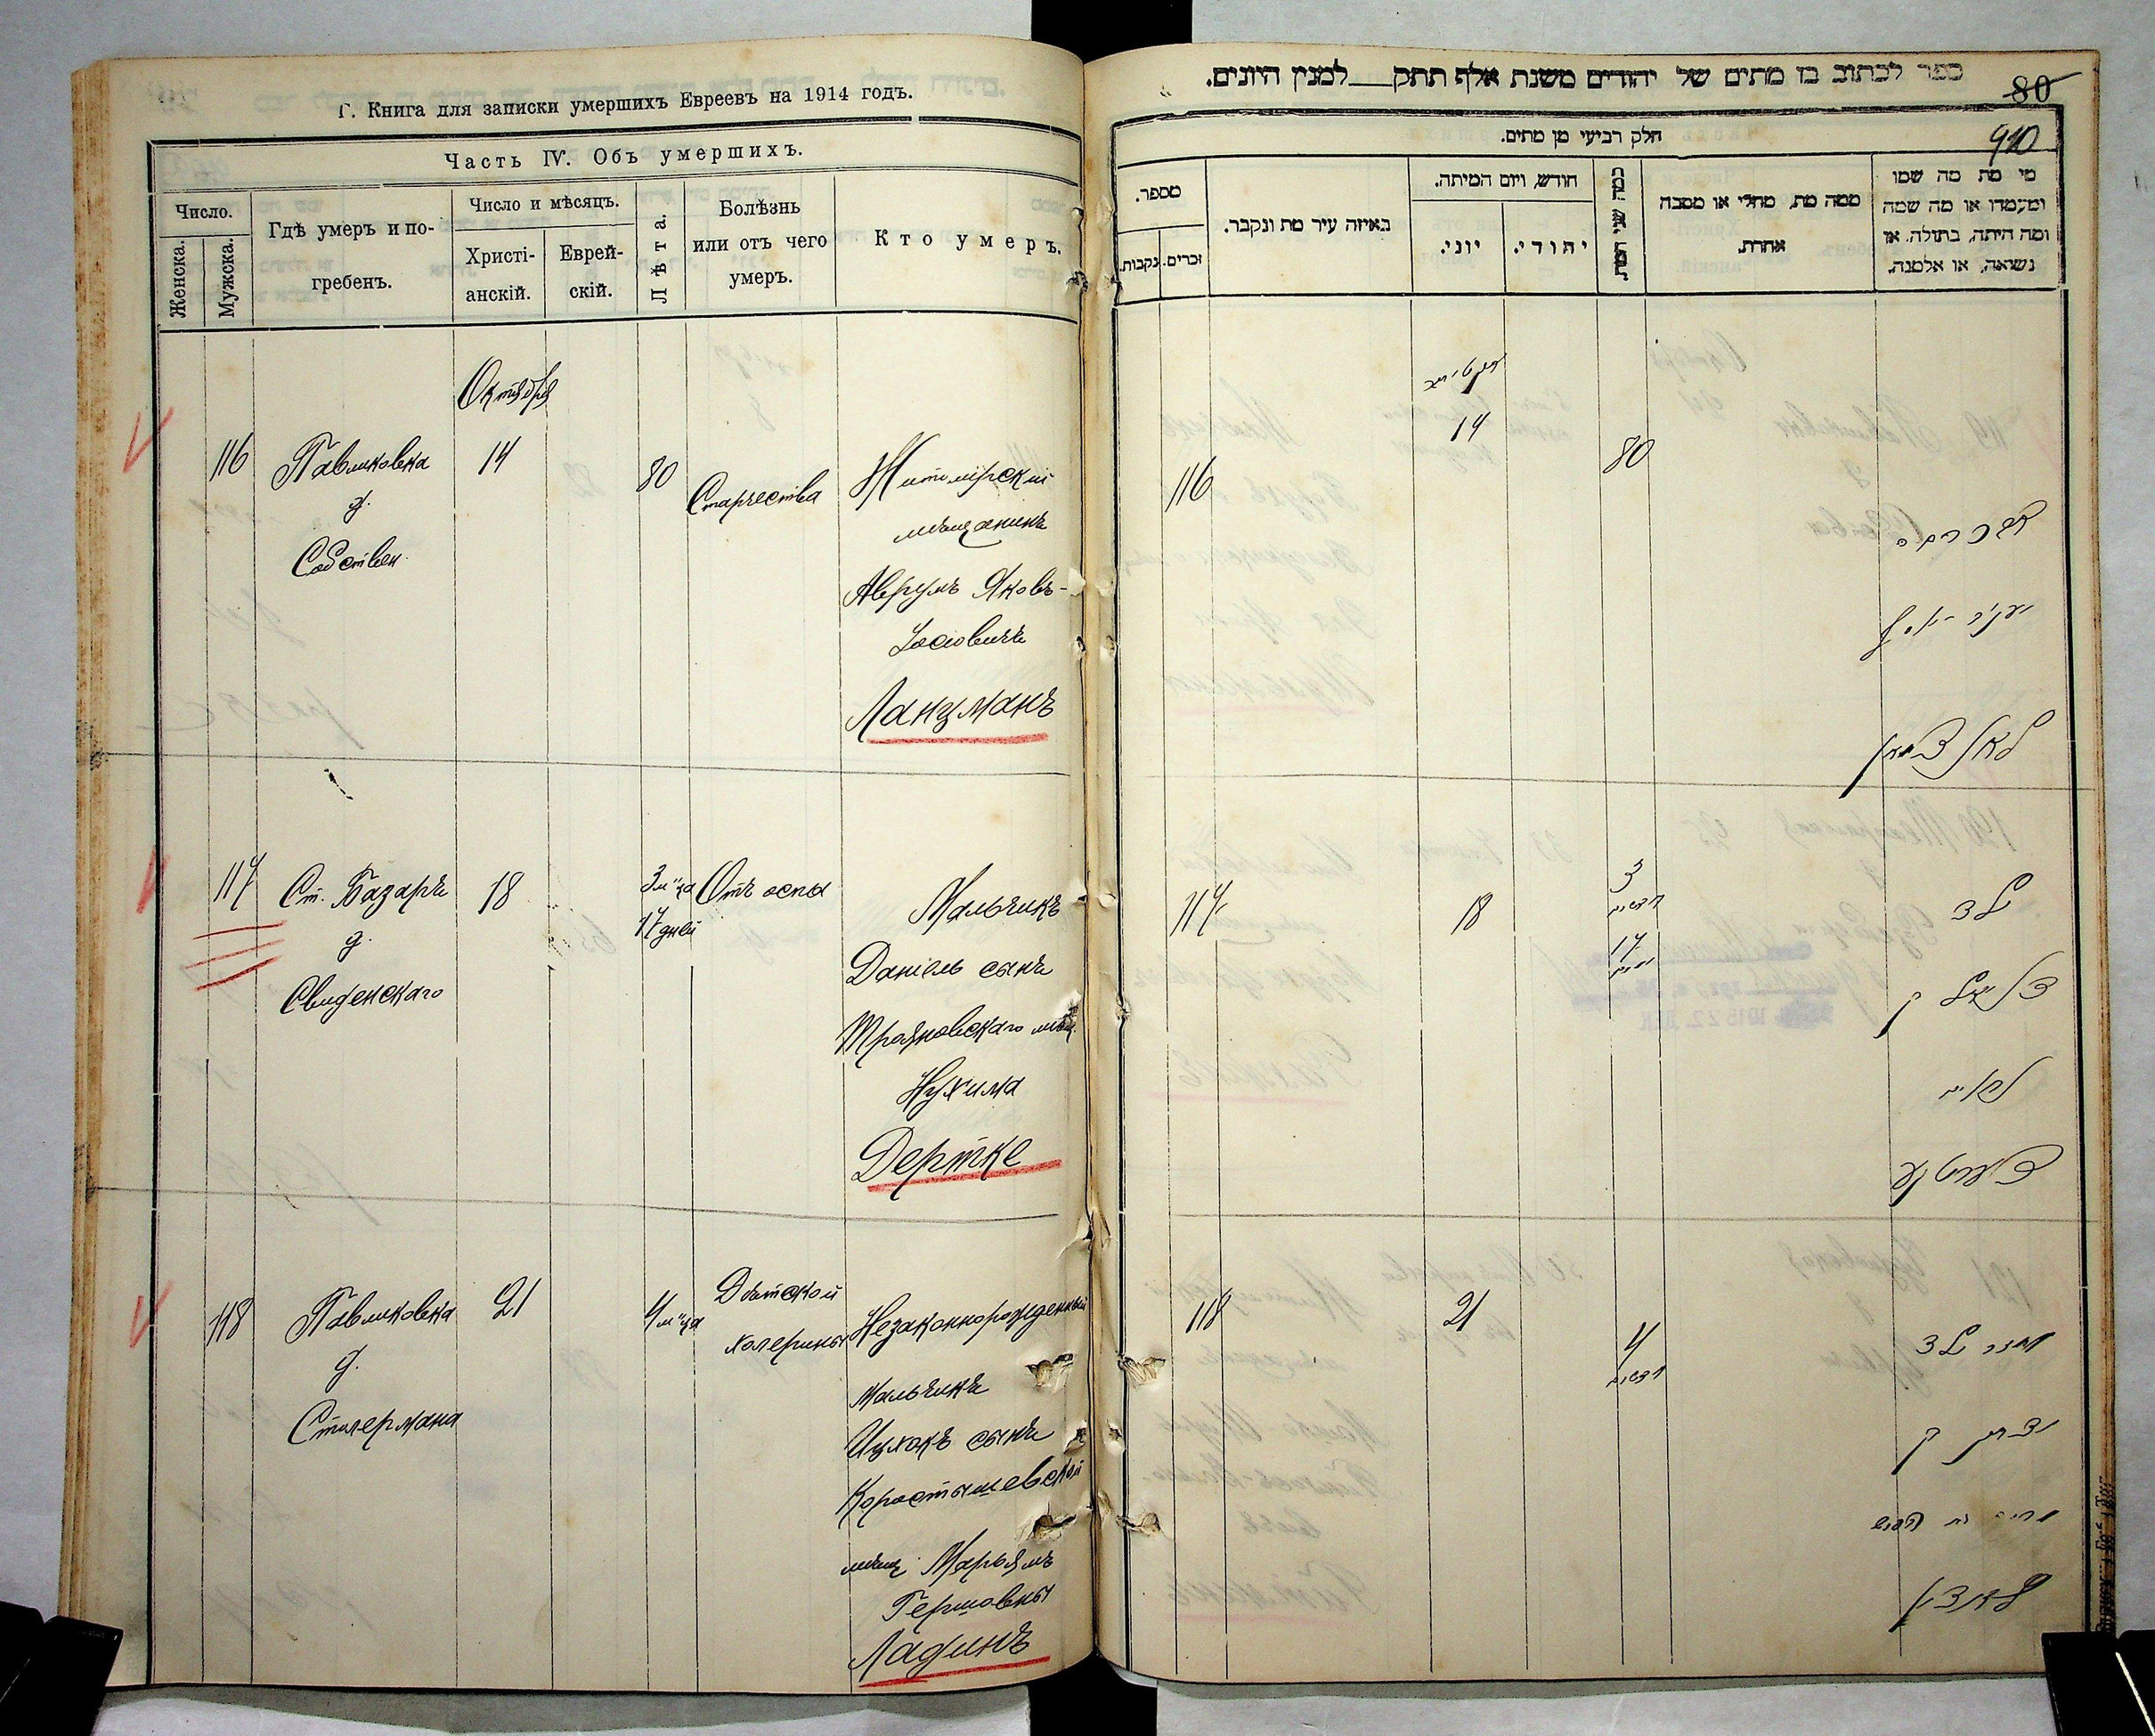 Г. Книга для записки умершихъ Евреевъ на 1914 годъ.
Часть IV. Объ умершихъ.
Число.
Женска.
Мужска.
Гдѣ умеръ и по-
гребенъ.
Число и мѣсяцъ.
Христі-
анскій.
Еврей-
скій.
Лѣта.
Болѣзнь
или отъ чего
умеръ.
Кто умеръ.
Октября
116
Павликовка
д.
Собствен.
14
80
Старчества
Житомірскій
мѣщанинъ
Аврумъ Яковъ-
Іосіовичъ
Ланцманъ
117
Ст. Базаръ
д.
Свиденскаго
18
3 м-ца
17 дней
Отъ оспы
Мальчикъ
Даніель сынъ
Трояновскаго мѣщ.
Нухима
Дертке
118
Павликовка
д.
Столермана
21
4 м-ца
Дѣтской
холерины
Незаконнорожденный
мальчикъ
Ицхокъ сынъ
Коростышевской
мѣщ. Марьямъ
Гершовны
Ладинъ
ספר לכתוב בו מתים של יהודים משנת אלף תתק למנין היונים.
80
910
חלק רביעי מן מתים.
מספר.
נקבות.
זכרים.
באיזה עיר מת ונקבר.
חודש, ויום המיתה.
יוני.
יהודי.
כמה שני המת.
ממה מת, מחלי או מסבה
אחרת.
מי מת מה שמו
ומעמדו או מה שמה
ומה היתה, בתולה, או
נשואה, או אלמנה.
אקטיאבר
116
14
80
אברהם
יעקב יאסף
לאנצמאן
117
18
3
חדשים
17
ימים
ילד
דניאל בן
נחום
דערטקע
118
21
4
חדשים
ממזר ילד
יצחק בן
מרים בת הערש
לאדין